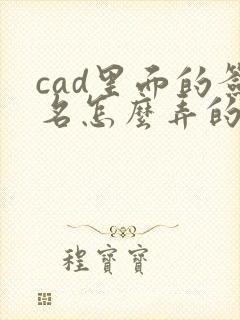 cad里面的簽
名怎麼弄的
程寶寶